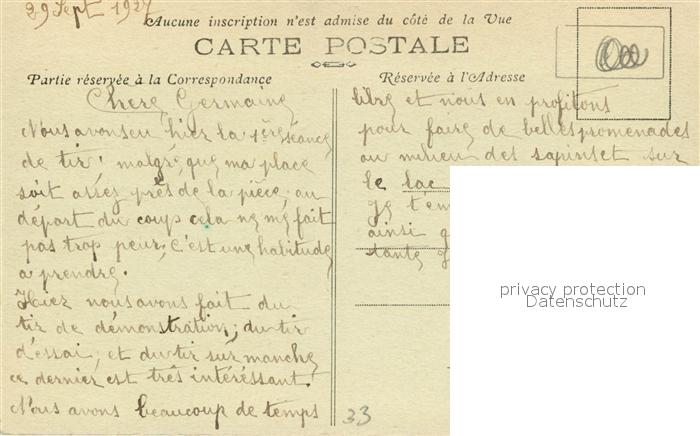 29 Sept 1927
Aucune inscription n'est admise du côté de la Vue
CARTE POSTALE
Partie réservée à la Correspondance
Réservée à l'Adresse
Chere Germaine
Nous avons eu hier la 1ère séance
de tir; malgré que ma place
soit assez près de la pièce, au
départ du coup cela ne me fait
pas trop peur, c'est une habitude
a prendre.
Hier nous avons fait du
tir de démonstration; du tir
d'essai; et du tir sur manche
ce dernier est très intéréssant.
Nous avons beaucoup de temps
33
libre et nous en profitons
pour faire de belles promenades
au milieu des sapins et sur
le lac
Je t'em
ainsi q
tante G
privacy protection
Datenschutz